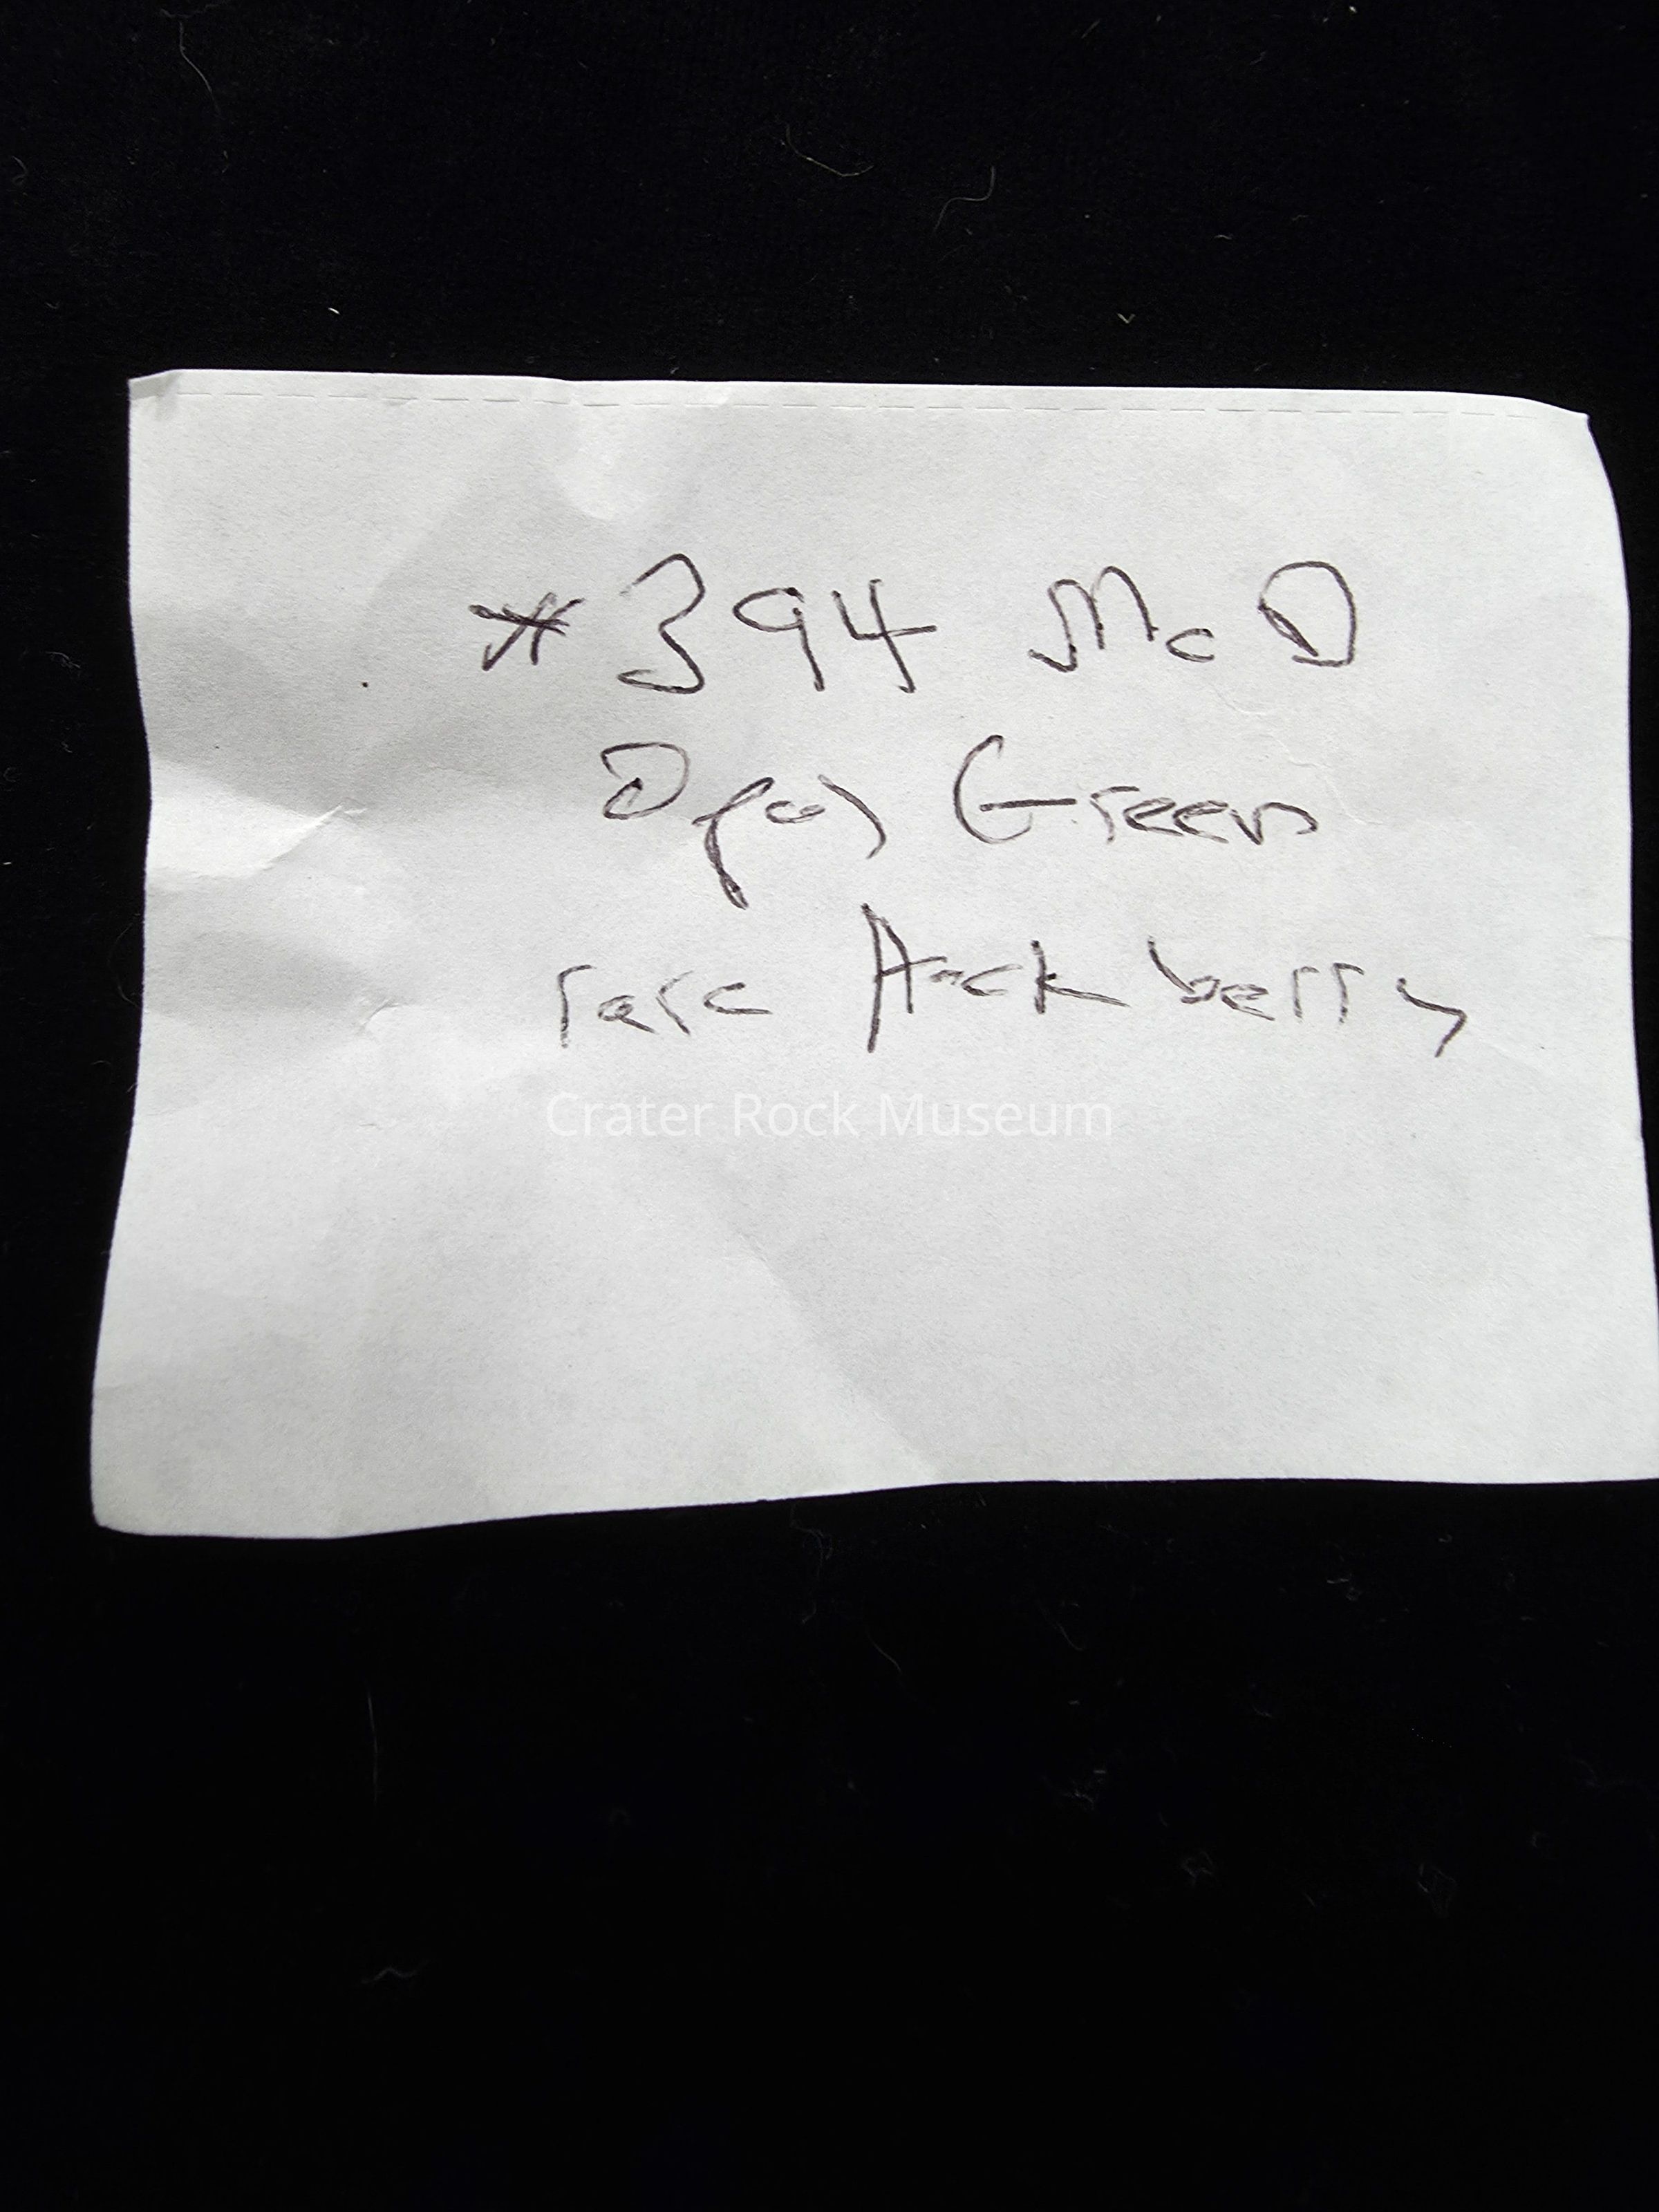 *394 McD
Green
rare Hackberry
Crater Rock Museum